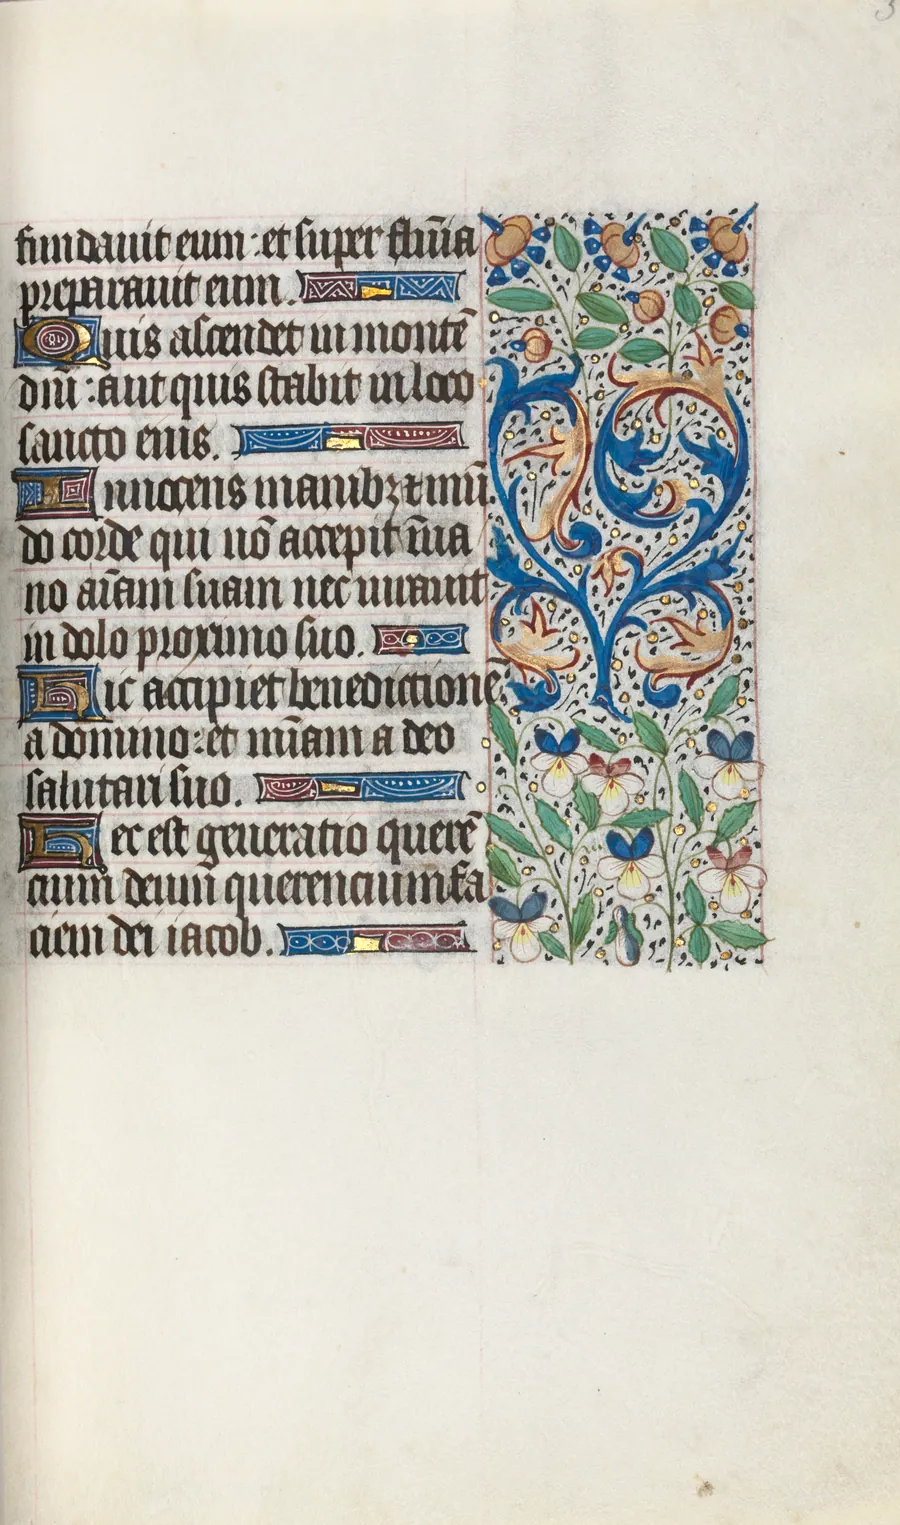 fundauit eum : et super flūīa
preparauit eum .
Quis ascendet in montē
dnī : aut quis stabit in loco
sancto eius .
Innocens manibꝫ ⁊ mū
do corde qui nō accepit ī ua
no aīam suam nec iurauit
in dolo proximo suo .
Hic accipiet benedictionē
a domino : et mīam a deo
salutari suo .
Hec est generatio querē
cium deum querencium fa
ciem dei iacob .